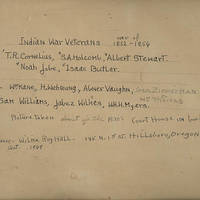 Indian War Veterans war of
1852-1854
T.R. Cornelius, S.A. Holcomb, Albert Stewart.
"Noah Jobe, "Isaac Butler.
Wm Kane, H. Wehrung, Abner Vaughn,
Sam Williams, Jabez Wilkes, W.H.H. Myers.
Picture Taken about Court House on
Wilma Roy Hall - N. 1st St. Hillsboro, Oregon
Oct.